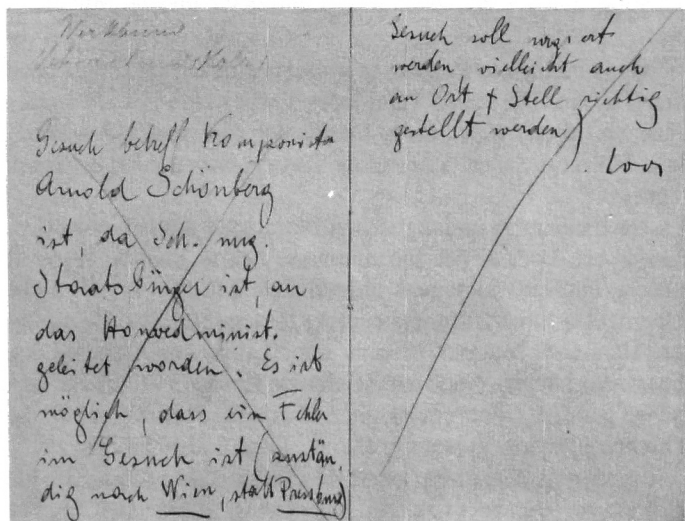 Werkbund
Gesuch betreff Komponisten
Arnold Schönberg
ist, da Sch. ung.
Staatsbürger ist, an
das Honvedminist.
geleitet worden. Es ist
möglich, dass ein Fehler
im Gesuch ist (anstän,
dig nach Wien, statt Pressburg)
Gesuch soll urgiert
werden, vielleicht auch
an Ort & Stell richtig
gestellt werden)
Loos